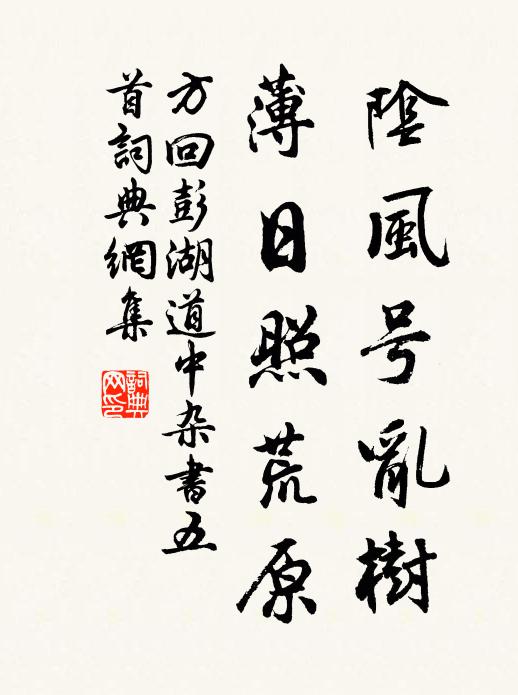 陰風号亂樹
薄日照荒原
方回彭湖道中杂書五
首詞典網集
詞典
网印